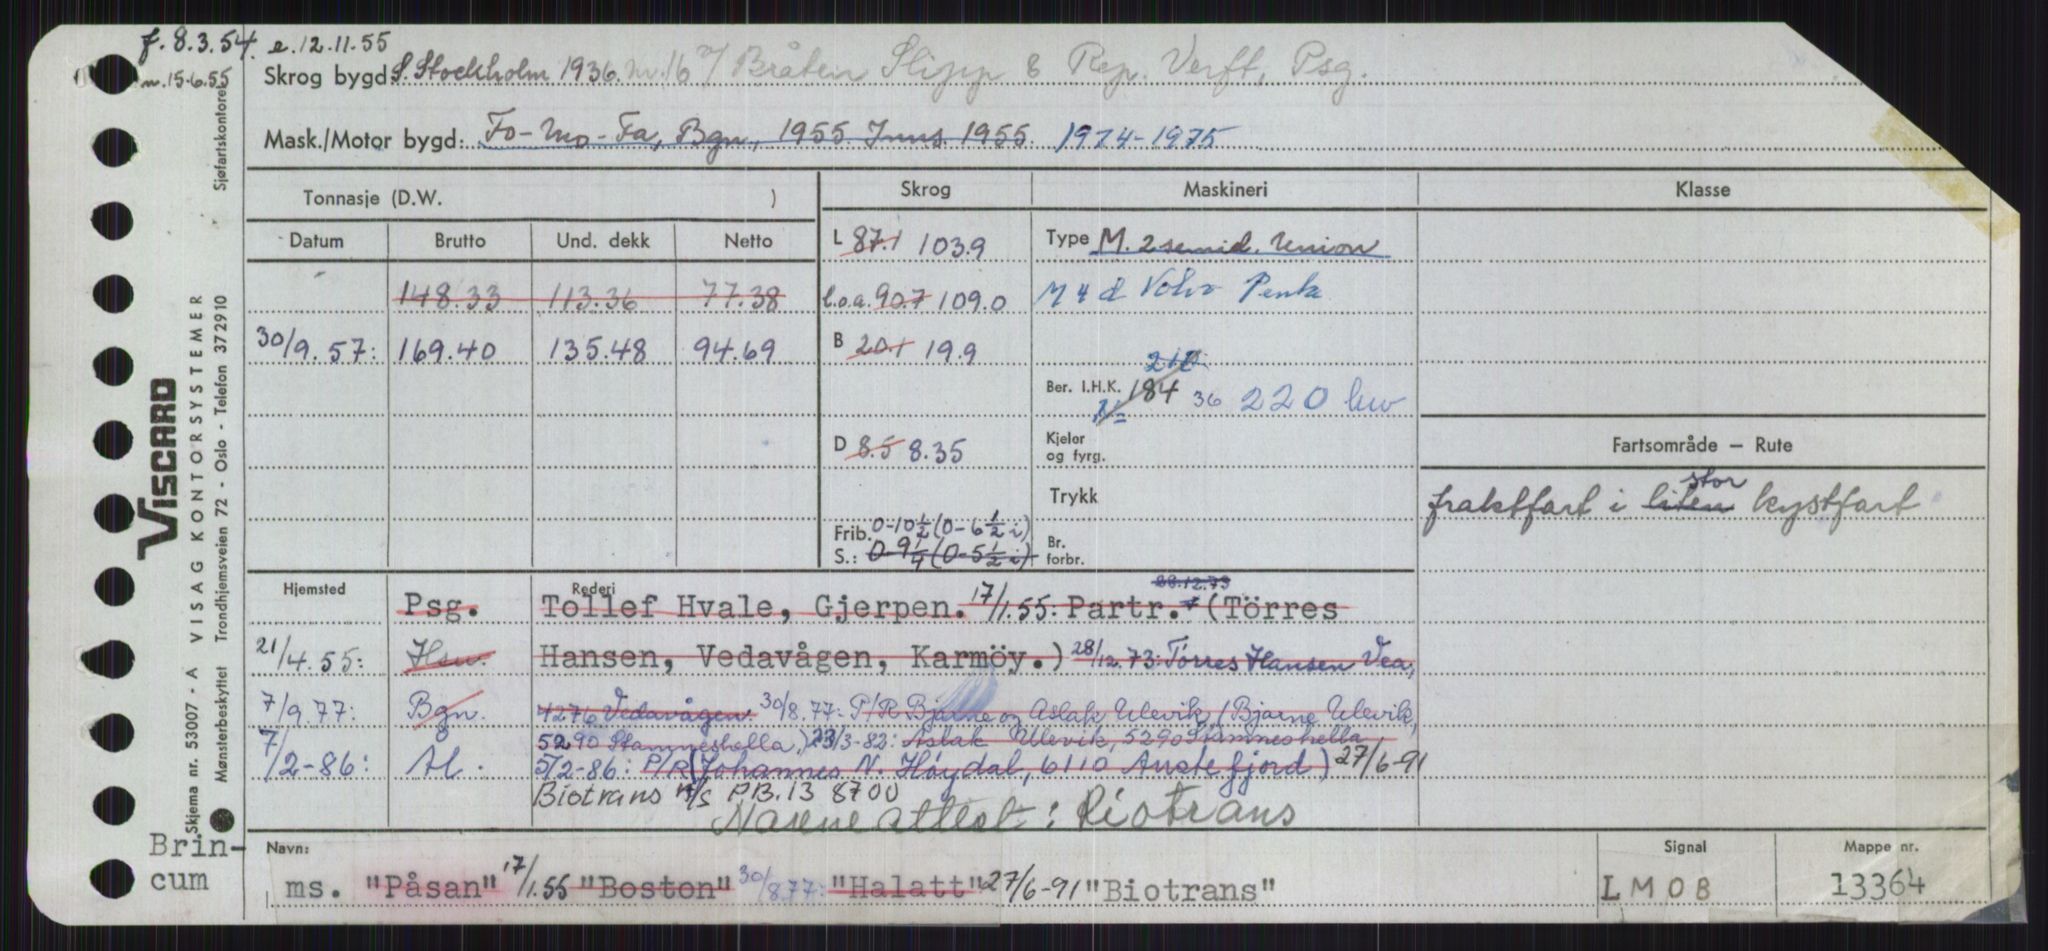 f. 8.3.54. e. 12.11.55
m. 15.6.55
Skrog bygd S. Stockholm 1936. nr. 16 v/ Bråten Slipp & Rep. Verft, Psg.
Mask./Motor bygd: Fo-Mo-Fa, Bgn, 1955. Inns. 1955. 1974-1975
Tonnasje (D.W. )
Skrog
Maskineri
Klasse
Datum Brutto Und. dekk Netto
L 87.1 103.9
Type M. 2 semid. Union
148.33 113.36 77.38
l.o.a. 90.7 109.0
M 4 d Volvo Penta
30/9.57: 169.40 135.48 94.69
B 20.1 19.9
210
Ber. I.H.K. 184 36 220 kw
N=
D 8.5 8.35
Kjeler og fyrg.
Fartsområde – Rute
Trykk
stor
fraktfart i liten kystfart
Frib. 0-10½ (0-6½ i)
S.: 0-9¼ (0-5½ i)
Br. forbr.
Hjemsted
Rederi
28.12.73
Psg. Tollef Hvale, Gjerpen. 17/1.55: Partr. (Törres
21/4.55: Hsu. Hansen, Vedavågen, Karmöy.) 28/12.73: Törres Hansen Vea,
7/9.77: Bgn. 4276 Vedavågen 30/8.77: P/R Bjarne og Aslak Ulevik, (Bjarne Ulevik,
5290 Stamneshella.) 23/3-82: Aslak Ulevik, 5290 Stamneshella
7/2-86: Ål. 5/2-86: P/R (Johannes N. Høydal, 6110 Austefjord) 27/6-91
Biotrans A/S P.B. 13 8700
Navne attest: Riotrans
Brin-
cum
Navn:
ms. "Påsan" 17/1.55 "Boston" 30/8.77: "Halatt" 27/6-91 "Biotrans"
Signal
LMOB
Mappe nr.
13364
VISCARD
Skjema nr. 53007 - A VISAG KONTORSYSTEMER
Mønsterbeskyttet Trondhjemsveien 72 - Oslo - Telefon 372910
Sjøfartskontoret